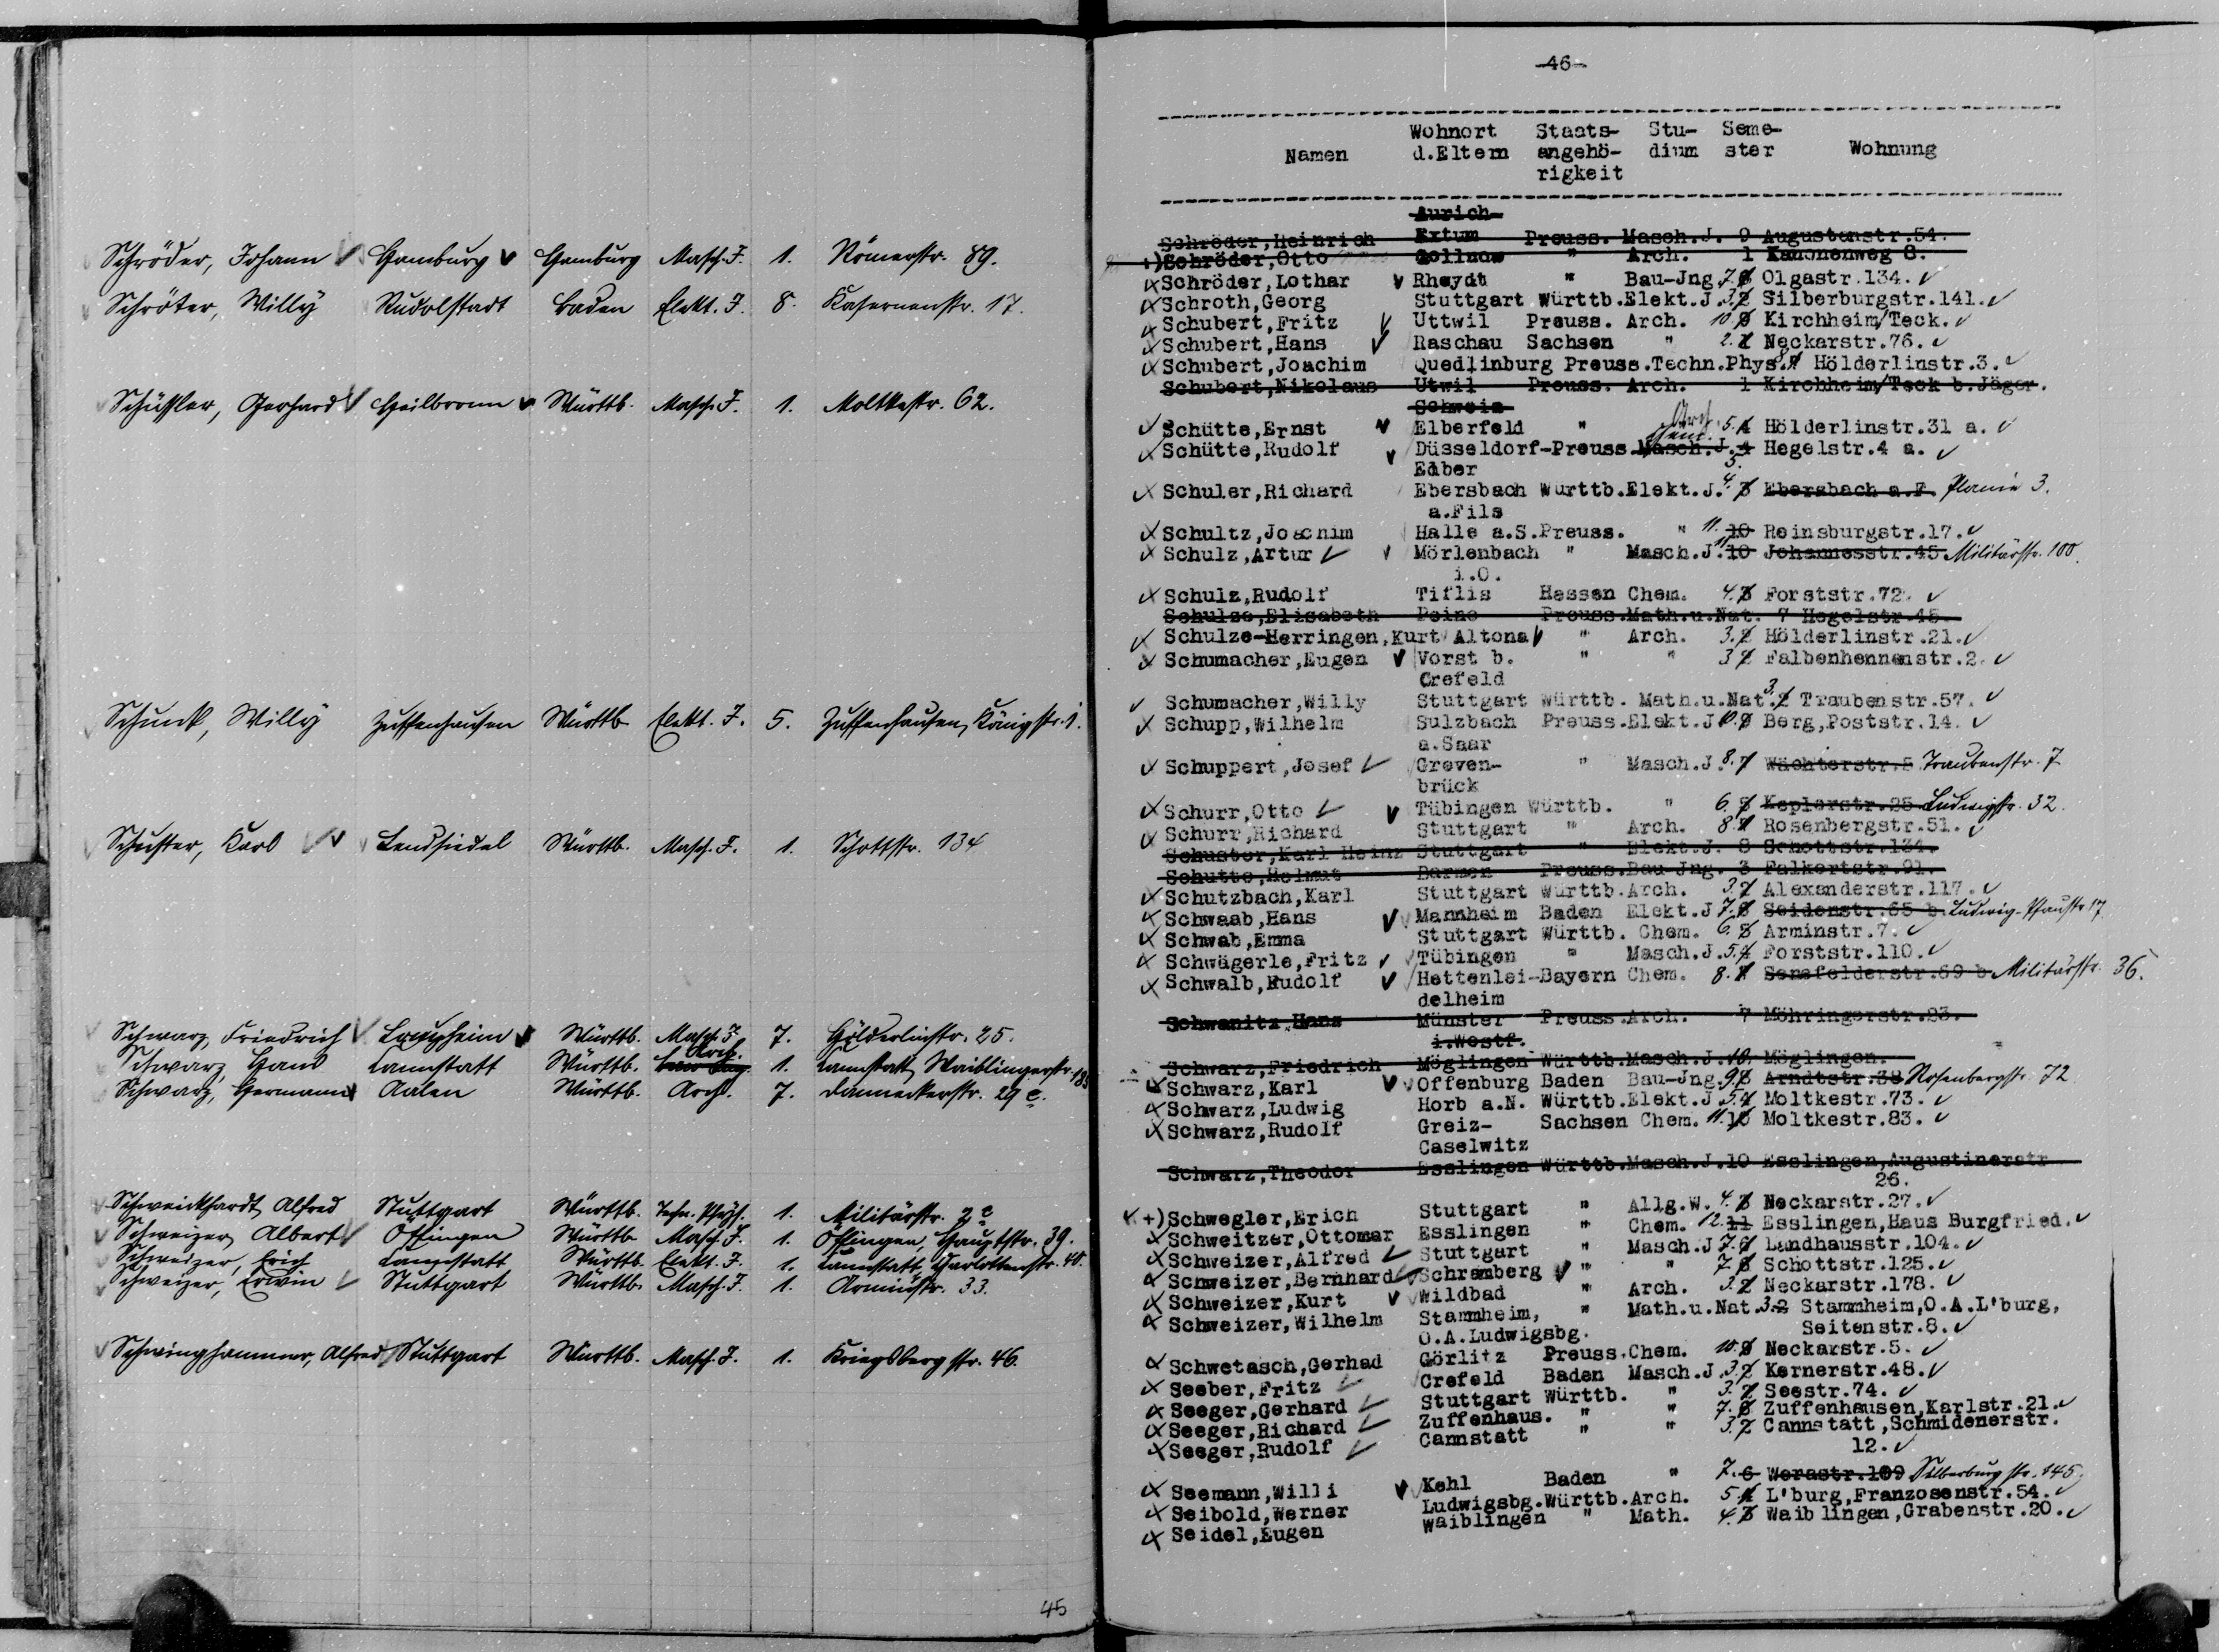 Schröder, Johann Hamburg Hamburg Masch. J. 1. Römerstr. 89.
Schröter, Willy Rudolstadt Baden Elekt. J. 8. Kasernenstr. 17.
Schüssler, Gerhard Heilbronn Württb. Masch. J. 1. Moltkestr. 62.
Schunk, Willy Zuffenhausen Württb Elekt. J. 5. Zuffenhausen, Königstr. 1.
Schuster, Karl Lendsiedel Württb. Masch. J. 1. Schottstr. 134
Schwarz, Friedrich Laupheim Württb. Masch. J. 7. Hölderlinstr. 25.
Schwarz, Hans Cannstatt Württb. Arch. 1. Cannstatt, Waiblingerstr.
Schwarz, Hermann Aalen Württb. Arch. 7. Danneckerstr. 29 c.
Schweickhardt Alfred Stuttgart Württb. Techn. Phys. 1. Militärstr. 2 c
Schweizer, Albert Öffingen Württb Masch. J. 1. Öffingen, Hauptstr. 39.
Schweizer, Erich Cannstatt Württb. Elekt. J. 1. Cannstatt, Charlottenstr. 40.
Schweizer, Erwin Stuttgart Württb. Masch. J. 1. Arminstr. 33.
Schwinghammer, Alfred Stuttgart Württb. Masch. J. 1. Kriegsbergstr. 46.
45
-46-
Wohnort Staats- Stu- Seme-
Namen d.Eltern angehö- dium ster Wohnung
rigkeit
Aurich-
Schröder,Heinrich Extum Preuss. Masch.J. 9 Augustenstr.54.
+)Schröder,Otto Gollnow " Arch. 1 Kanonenweg 8.
Schröder,Lothar Rheydt " Bau-Jng. 7. Olgastr.134.
Schroth,Georg Stuttgart Württb.Elekt.J. 3. 2 Silberburgstr.141.
Schubert,Fritz Uttwil Preuss. Arch. 10. 9 Kirchheim/Teck.
Schubert,Hans Raschau Sachsen " 2. 1 Neckarstr.76.
Schubert,Joachim Quedlinburg Preuss.Techn.Phys. 8. 7 Hölderlinstr.3.
Schubert,Nikolaus Utwil Preuss. Arch. 1 Kirchheim/Teck b.Jäger.
Schweiz
Schütte,Ernst Elberfeld " Arch. 5. 4 Hölderlinstr.31 a.
Schütte,Rudolf Düsseldorf-Preuss. Chem. Masch.J. 4 Hegelstr.4 a.
Edber 5.
Schuler,Richard Ebersbach Württb.Elekt.J. 4. 3 Ebersbach a.F. Planie 3.
a.Fils
Schultz,Joachim Halle a.S.Preuss. " 11. 10 Reinsburgstr.17.
Schulz,Artur Mörlenbach " Masch.J. 11 10 Johannesstr.45 Militärstr. 100.
i.O.
Schulz,Rudolf Tiflis Hessen Chem. 4. 3 Forststr.72.
Schulze,Elisabeth Peine Preuss.Math.u.Nat. 7 Hegelstr.45
Schulze-Herringen,Kurt Altona " Arch. 3. 2 Hölderlinstr.21.
Schumacher,Eugen Vorst b. " " 3 2 Falbenhennenstr.2.
Crefeld
Schumacher,Willy Stuttgart Württb. Math.u.Nat. 3. 2 Traubenstr.57.
Schupp,Wilhelm Sulzbach Preuss.Elekt.J 10. 9 Berg,Poststr.14.
a.Saar
Schuppert,Josef Greven- " Masch.J. 8. 7 Wächterstr.5 Traubenstr. 7
brück
Schurr,Otto Tübingen Württb. " 6. 5 Keplerstr.25 Ludwigstr. 32.
Schurr,Richard Stuttgart " Arch. 8. 7 Rosenbergstr.51.
Schuster,Karl Heinz Stuttgart " Elekt.J. 8 Schottstr.134.
Schutte,Helmut Barmen Preuss.Bau-Jng. 3 Falkertstr.91.
Schutzbach,Karl Stuttgart Württb.Arch. 3. 2 Alexanderstr.117.
Schwaab,Hans Mannheim Baden Elekt.J 7. 6 Seidenstr.65 b. Ludwig-Pfaustr 17
Schwab,Emma Stuttgart Württb. Chem. 6. 5 Arminstr.7.
Schwägerle,Fritz Tübingen " Masch.J. 5. 4 Forststr.110.
Schwalb,Rudolf Hettenlei-Bayern Chem. 8. 7 Senefelderstr.69 b Militärstr. 36.
delheim
Schwanitz,Hans Münster Preuss.Arch. 7 Möhringerstr.23.
i.Westf.
Schwarz,Friedrich Möglingen Württb.Masch.J. 10. Möglingen.
Schwarz,Karl Offenburg Baden Bau-Jng. 9. 8 Arndtstr.38 Rosenbergstr. 72
Schwarz,Ludwig Horb a.N. Württb.Elekt.J 5. 4 Moltkestr.73.
Schwarz,Rudolf Greiz- Sachsen Chem. 11. 10 Moltkestr.83.
Caselwitz
Schwarz,Theodor Esslingen Württb.Masch.J.10 Esslingen,Augustinerstr
26.
+)Schwegler,Erich Stuttgart " Allg.W. 4. 3 Neckarstr.27.
Schweitzer,Ottomar Esslingen " Chem. 12. 11 Esslingen,Haus Burgfried.
Schweizer,Alfred Stuttgart " Masch.J 7. 6 Landhausstr.104.
Schweizer,Bernhard Schramberg " " 7. 6 Schottstr.125.
Schweizer,Kurt Wildbad " Arch. 3. 2 Neckarstr.178.
Schweizer,Wilhelm Stammheim, " Math.u.Nat. 3. 2 Stammheim,O.A.L'burg,
O.A.Ludwigsbg. Seitenstr.8.
Schwetasch,Gerhad Görlitz Preuss.Chem. 10. 9 Neckarstr.5.
Seeber,Fritz Crefeld Baden Masch.J 3. 2 Kernerstr.48.
Seeger,Gerhard Stuttgart Württb. " 3. 2 Seestr.74.
Seeger,Richard Zuffenhaus. " " 7. 6 Zuffenhausen,Karlstr.21.
Seeger,Rudolf Cannstatt " " 3. 2 Cannstatt,Schmidenerstr.
12.
Seemann,Willi Kehl Baden " 7. 6 Werastr.109 Silberburgstr. 145.
Seibold,Werner Ludwigsbg.Württb.Arch. 5 4 L'burg,Franzosenstr.54.
Seidel,Eugen Waiblingen " Math. 4. 3 Waiblingen,Grabenstr.20.